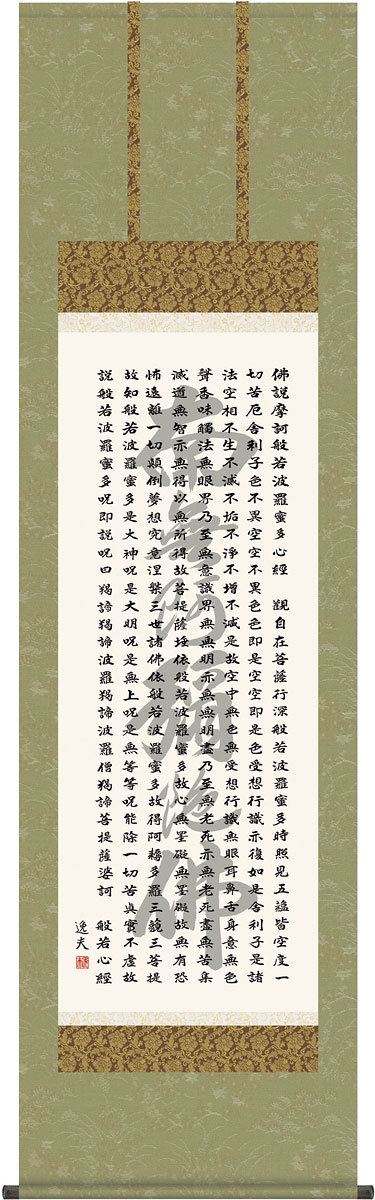 佛說摩訶般若波羅蜜多心經　觀自在菩薩行深般若波羅蜜多時照見五蘊皆空度一
切苦厄舍利子色不異空空不異色色即是空空即是色受想行識亦復如是舍利子是諸
法空相不生不滅不垢不淨不增不減是故空中無色無受想行識無眼耳鼻舌身意無色
聲香味觸法無眼界乃至無意識界無無明亦無無明盡乃至無老死亦無老死盡無苦集
滅道無智亦無得以無所得故菩提薩埵依般若波羅蜜多故心無罣礙無罣礙故無有恐
怖遠離一切顛倒夢想究竟涅槃三世諸佛依般若波羅蜜多故得阿耨多羅三藐三菩提
故知般若波羅蜜多是大神呪是大明呪是無上呪是無等等呪能除一切苦真實不虛故
說般若波羅蜜多呪即說呪曰　羯諦羯諦波羅羯諦波羅僧羯諦菩提薩婆訶　般若心經
逸夫
南無阿彌陀佛